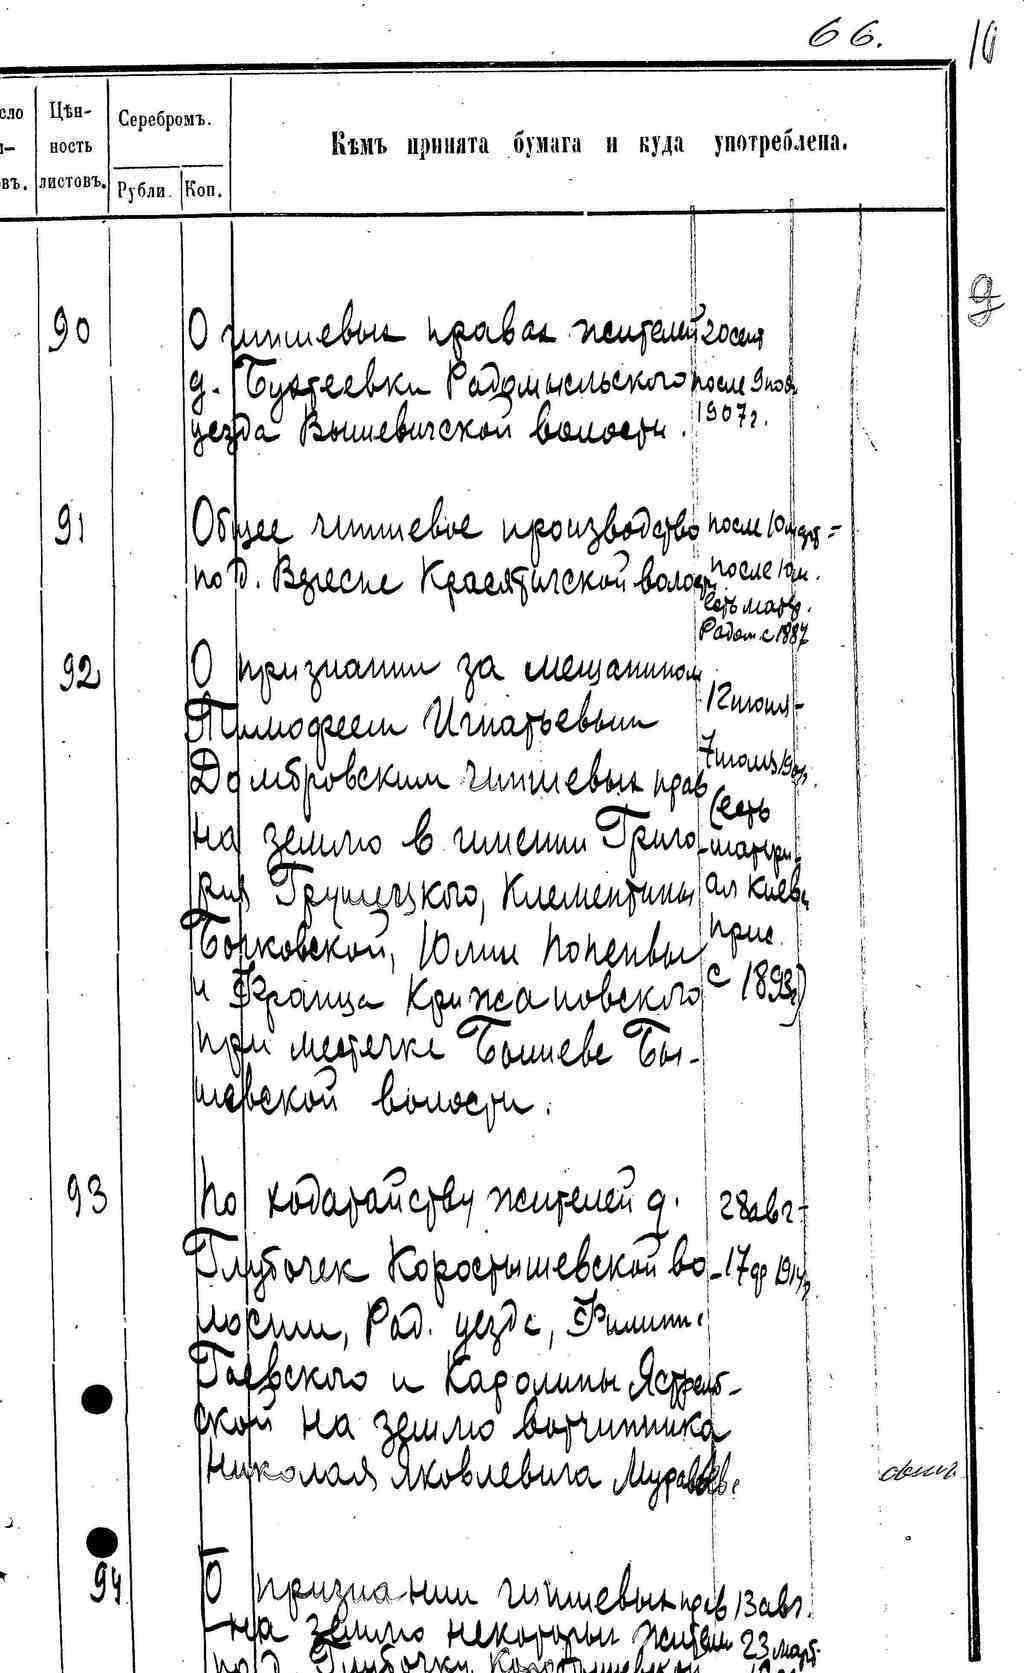 66.
10
сло
Цѣн-
ность
листовъ.
Серебромъ.
Рубли.
Коп.
Кѣмъ принята бумага и куда употреблена.
9
90
О чиншевых правах жителей
д. Буктеевки Радомысльского
уезда Вышевичской волости.
20 сент
после 9 нояб
1907 г.
91
Общее чиншевое производство
по д. Вересне Красятичской волости
после 10 март =
после 10 м.
есть матер.
Радом с 1887
92
О признании за мещанином
Тимофеем Игнатьевым
Домбровским чиншевых прав
на землю в имении Григо-
рия Грушецкого, Клементины
Бочковской,
и Франца Крижановского
при местечке Бышеве Бы-
шевской волости.
12 июня -
7 июля
(есть
матери-
ал Киев.
прис.
с 1893 г.)
93
По ходатайству жителей д.
Глубочек Коростышевской во-
лости, Рад. уезда, Филиппа
Гаевского и Каролины Ястремб-
ской на землю вотчинника
Николая Яковлевича Муравьева
28 авг -
- 17 ф 1914 г.
94
О признании чиншевых прав
на землю некоторых жители
по д. Глубочку Коростышевской
13 авг.
23 март.